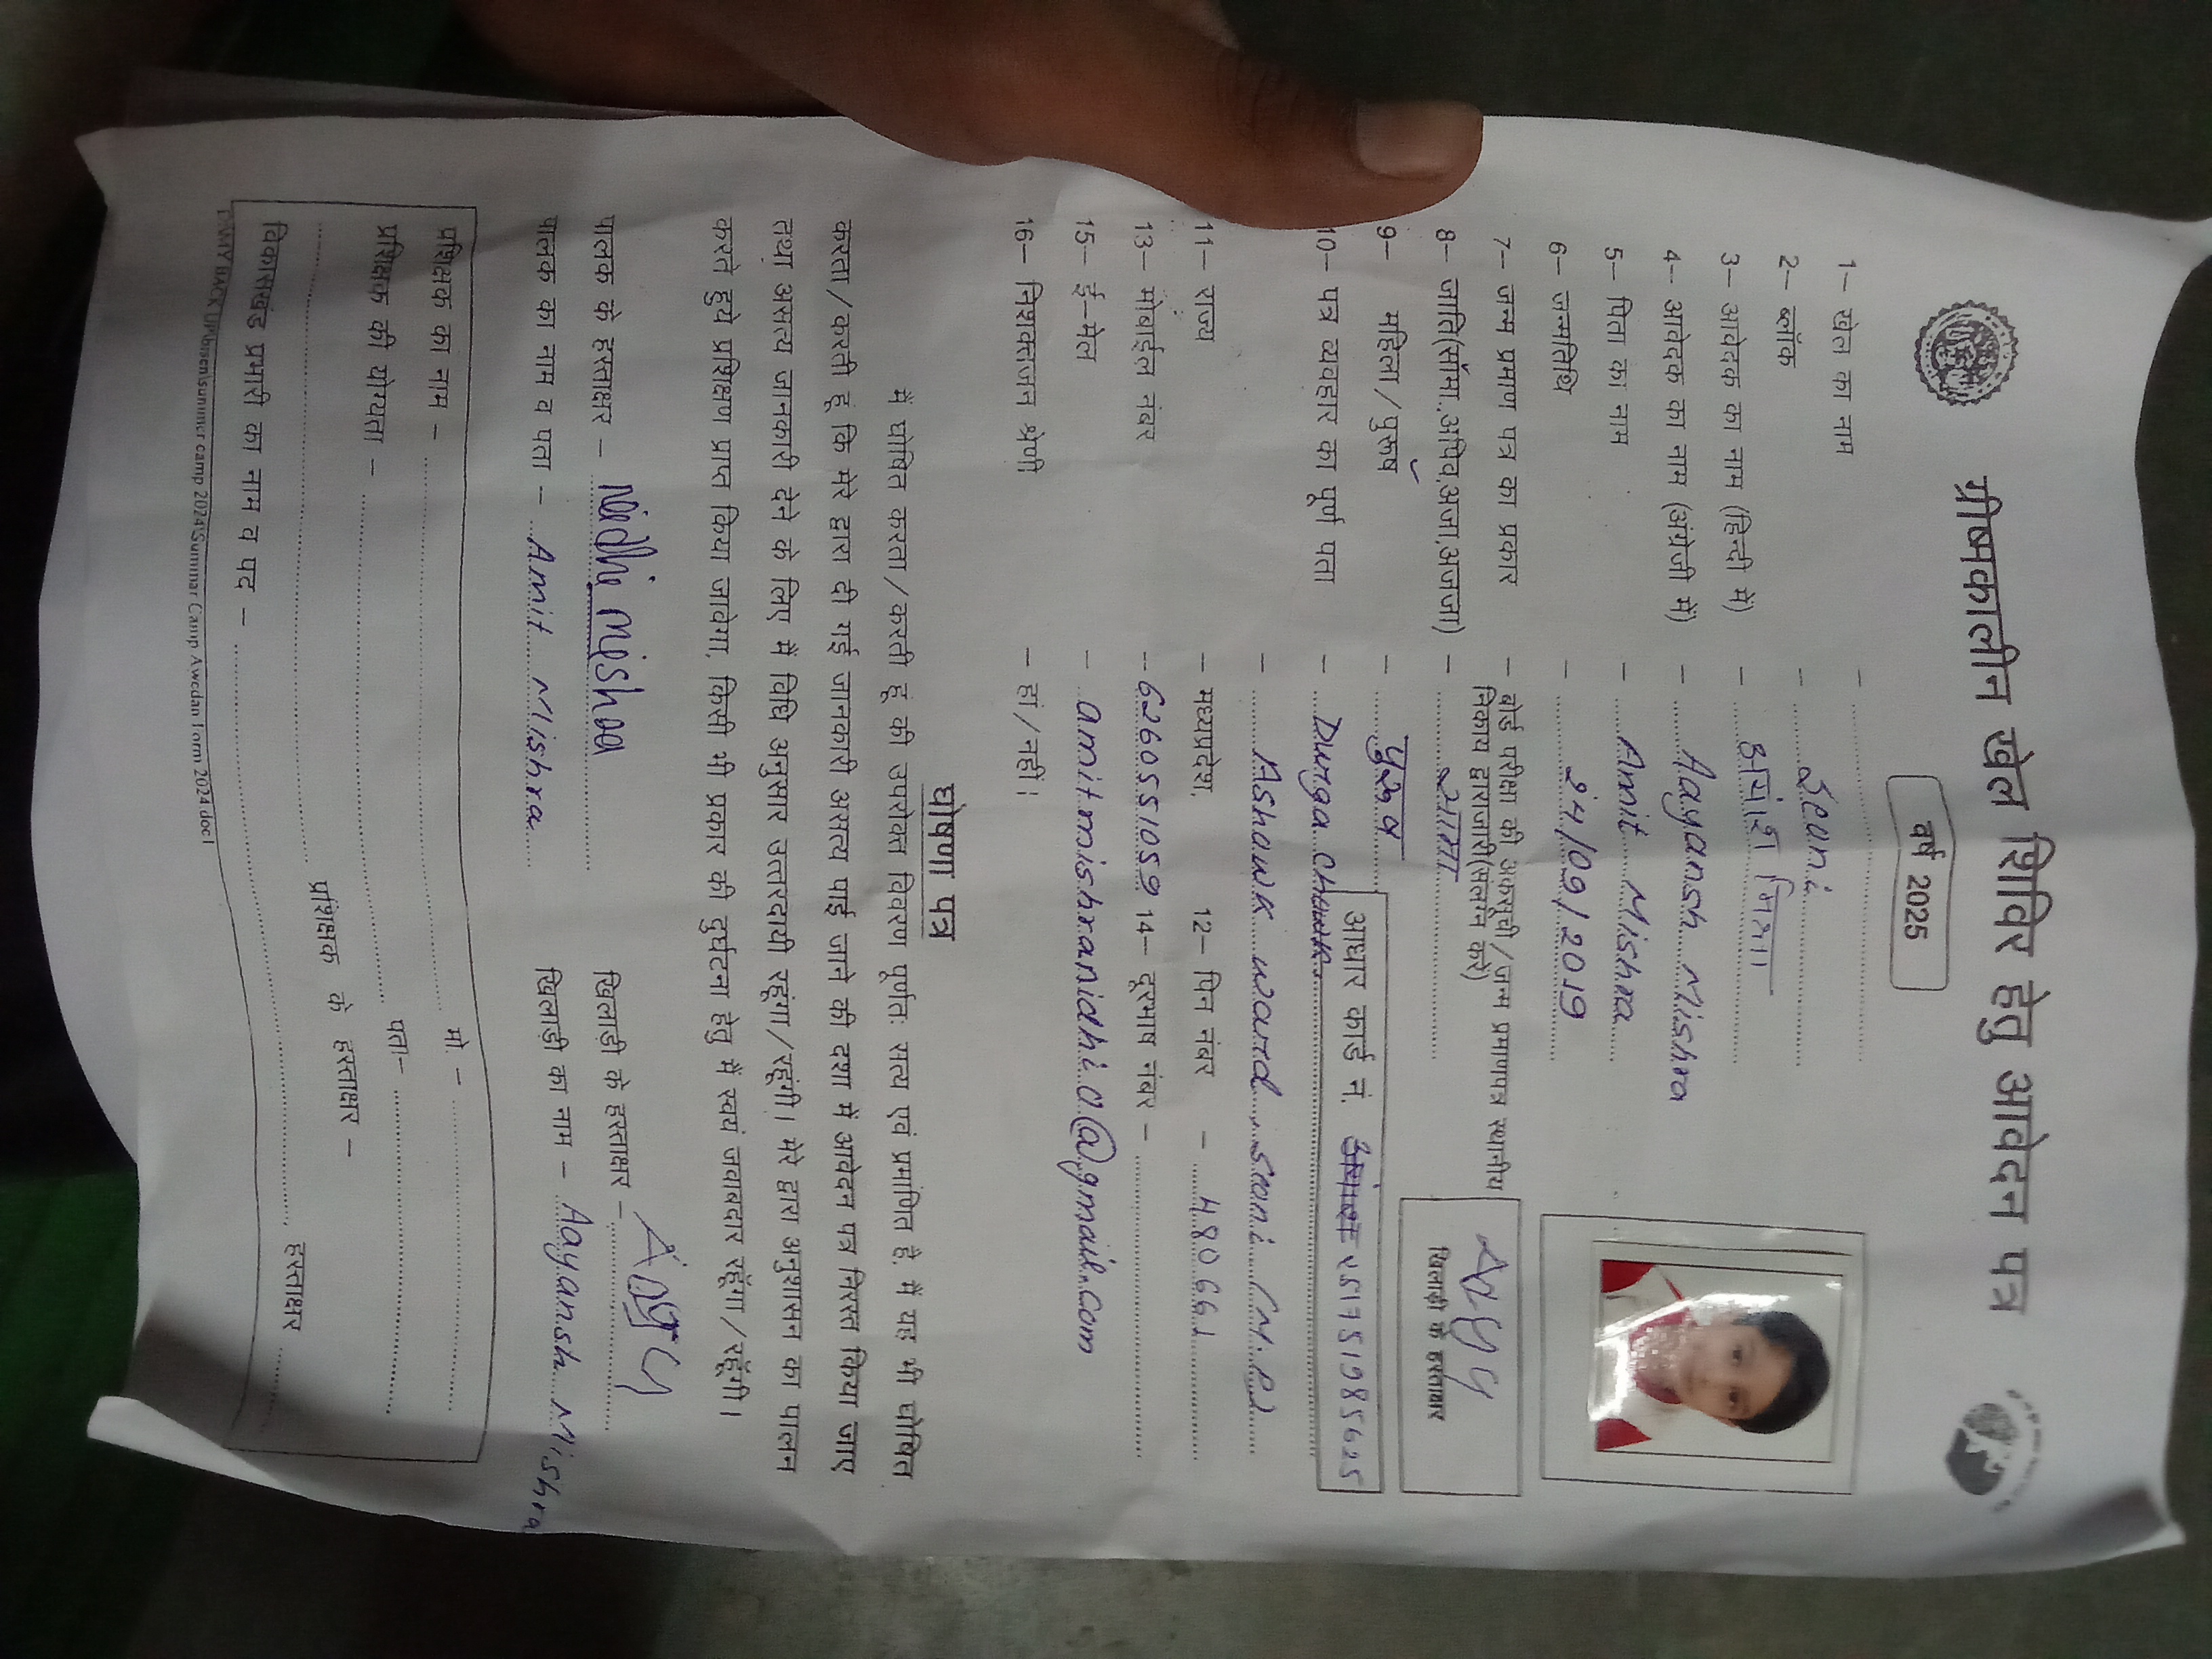 ग्रीष्मकालीन खेल शिविर हेतु आवेदन पत्र
वर्ष 2025
1– खेल का नाम –
2– ब्लॉक – Seoni
3– आवेदक का नाम (हिन्दी में) – आयांश मिश्रा
4– आवेदक का नाम (अंग्रेजी में) – Aayansh Mishra
5– पिता का नाम – Amit Mishra
6– जन्मतिथि – 24/09/2019
7– जन्म प्रमाण पत्र का प्रकार – बोर्ड परीक्षा की अंकसूची/जन्म प्रमाणपत्र स्थानीय
निकाय द्वाराजारी(संलग्न करें)
8– जाति(सामा.,अपिव,अजा,अजजा) – सामा
खिलाड़ी के हस्ताक्षर
9– महिला/पुरूष – पुरूष
आधार कार्ड नं.
10– पत्र व्यवहार का पूर्ण पता – Durga chowk
– Ashowk ward Seoni (M.P.)
11– राज्य – मध्यप्रदेश, 12– पिन नंबर – 480661
13– मोबाईल नंबर – 6260551059 14– दूरभाष नंबर –
15– ई–मेल – amitmishranidhi.0@gmail.com
16– निशक्तजन श्रेणी – हां/नहीं।
घोषणा पत्र
में घोषित करता/करती हूं की उपरोक्त विवरण पूर्णतः सत्य एवं प्रमाणित है, में यह भी घोषित
करता/करती हूं कि मेरे द्वारा दी गई जानकारी असत्य पाई जाने की दशा में आवेदन पत्र निरस्त किया जाए
तथा असत्य जानकारी देने के लिए में विधि अनुसार उत्तरदायी रहूंगा/रहूंगी। मेरे द्वारा अनुशासन का पालन
करते हुये प्रशिक्षण प्राप्त किया जावेगा, किसी भी प्रकार की दुर्घटना हेतु में स्वयं जवाबदार रहूंगा/रहूंगी।
पालक के हस्ताक्षर – Nidhi Mishra खिलाड़ी के हस्ताक्षर –
पालक का नाम व पता – Amit Mishra खिलाड़ी का नाम – Aayansh Mishra
प्रशिक्षक का नाम – मो. –
प्रशिक्षक की योग्यता – पता–
प्रशिक्षक के हस्ताक्षर –
विकासखंड प्रभारी का नाम व पद – हस्ताक्षर
summer camp 2024\Summar Camp Awedan Form 2024.doc